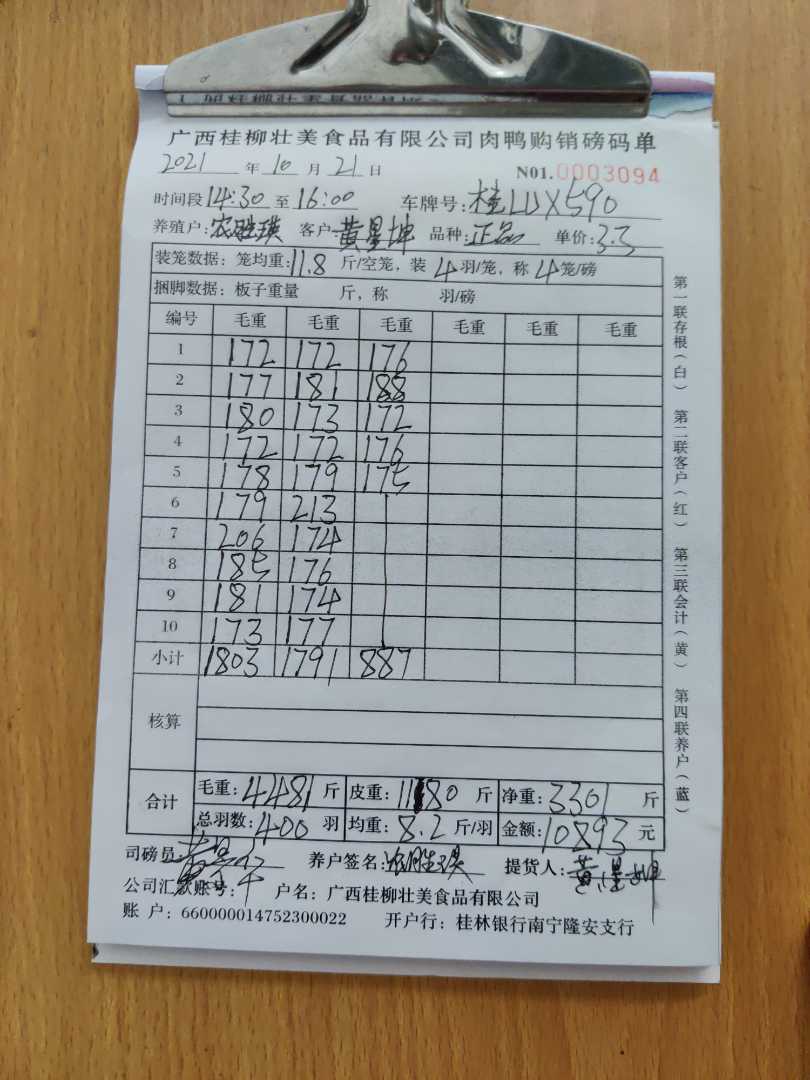 广西桂柳壮美食品有限公司肉鸭购销磅码单
2021 年 10 月 21 日 NO1.0003094
时间段 14:30 至 16:00 车牌号: 桂LUX590
养殖户: 农胜瑛 客户 黄星坤 品种: 正品 单价: 3.3
装笼数据: 笼均重: 11.8 斤/空笼, 装 4 羽/笼, 称 4 笼/磅
捆脚数据: 板子重量 斤, 称 羽/磅
编号 毛重 毛重 毛重 毛重 毛重 毛重
1 172 172 176
2 177 181 188
3 180 173 172
4 172 172 176
5 178 179 175
6 179 213
7 206 174
8 185 176
9 181 174
10 173 177
小计 1803 1791 887
核算
合计 毛重: 4481 斤 皮重: 1180 斤 净重: 3301 斤
总羽数: 400 羽 均重: 8.2 斤/羽 金额: 10893 元
司磅员: 养户签名: 农胜瑛 提货人: 黄星坤
公司汇款账号: 户名: 广西桂柳壮美食品有限公司
账 户: 660000014752300022 开户行: 桂林银行南宁隆安支行
第一联存根(白) 第二联客户(红) 第三联会计(黄) 第四联养户(蓝)